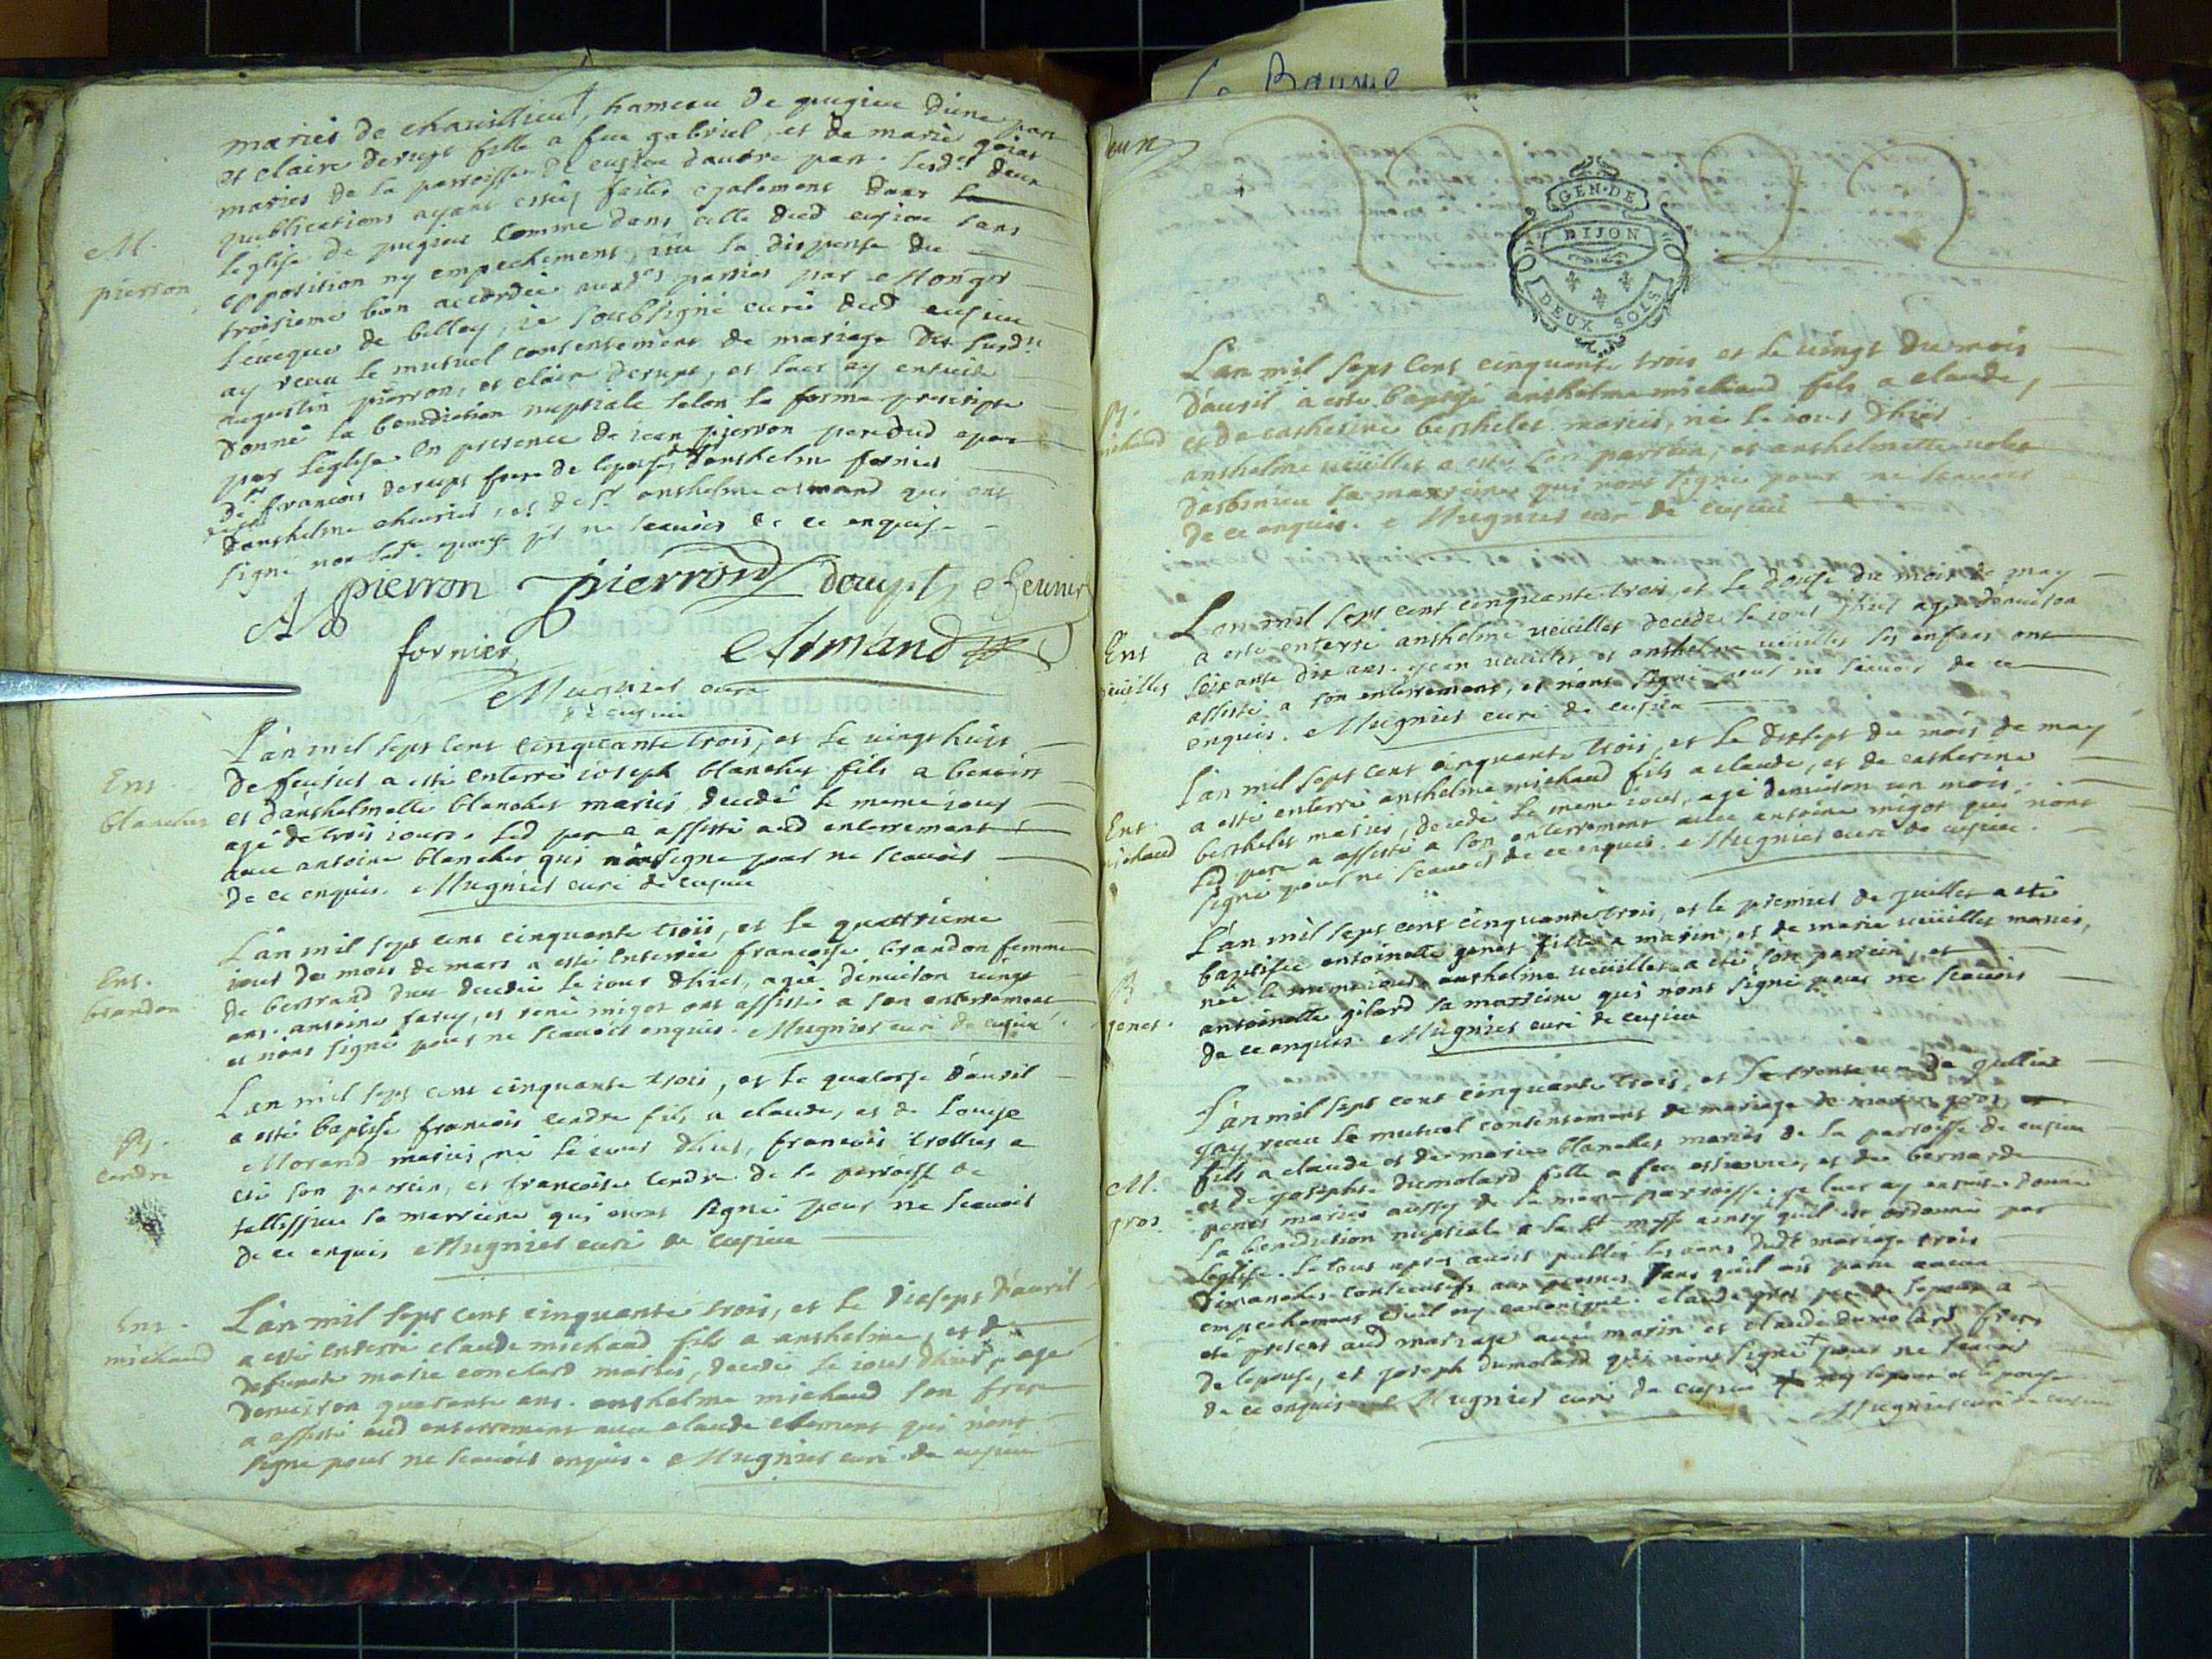 mariés de chavillieu, hameau de pugieu d'une part
et claire derupt fille a feu gabriel, et de marie goiat
mariés de la parroisse de cusieu dautre part. lesd. deux
publications ayant estés faites egalement dans la
M.
pierron
leglise de pugieu comme dans celle dud cusieu sans
opposition ny empechement, vu la dispense du
troisieme ban accordée auxd. parties par Monsgr
leveque de belley, je soubsigné curé dud cusieu
ay receu le mutuel consentement de mariage des susd.
augustin pierron, et claire derupt, et leur ay ensuite
donné la benediction nuptiale selon la forme prescripte
par leglise en presence de jean pierron pere dud epoux
de françois derupt frere de lepouse, danthelme fornier
danthelme chevrier, et de sr anthelme armand qui ont
signé non lad. epouse p. ne scavoir de ce enquise
A pierron pierron derupt
fornier Armand
Mugnier curé
de cusieu
Ent.
blanchet
L'an mil sept cent cinquante trois, et le vingt huit
de fevrier a esté enterré joseph blanchet fils a benoit
et d'anthelmette blanchet mariés, decedé le meme jour
agé de trois jours. led pere a assisté aud enterrement
avec antoine blanchet qui n'ont signé pour ne scavoir
de ce enquis. Mugnier curé de cusieu
Ent.
brandon
L'an mil sept cent cinquante trois, et le quattrieme
jour du mois de mars a esté enterrée françoise brandon femme
de bertrand decedée le jour d'hier, agée denviron vingt
ans. antoine et rené migot ont assisté a son enterrement
et n'ont signé pour ne scavoir enquis. Mugnier curé de cusieu.
B.
cendre
L'an mil sept cent cinquante trois, et le quatorze d'avril
a esté baptisé françois cendre fils a claude, et de Louise
Morand mariés, né le jour d'hier, françois trollier a
esté son parrein, et françoise cendre de la parroisse de
tallissieu sa marreine qui n'ont signé pour ne scavoir
de ce enquis Mugnier curé de cusieu
Ent.
michaud
L'an mil sept cent cinquante trois, et le dixsept d'avril
a esté enterré claude michaud fils a anthelme, et de
defuncte marie conchard mariés, decedé le jour d'hier, agé
denviron quarante ans. anthelme michaud son frere
a assisté aud enterrement avec claude clement qui n'ont
signé pour ne scavoir enquis. Mugnier curé de cusieu
La Baume
GEN. DE
DIJON
DEUX SOLS
B.
michaud
L'an mil sept cent cinquante trois et le vingt du mois
d'avril a esté baptisé anthelme michaud fils a claude,
et de catherine berthelet mariés, né le jour d'hier
anthelme veüillet a esté son parrein, et anthelmette
sa marreine qui n'ont signé pour ne scavoir
de ce enquis. Mugnier curé de cusieu
Ent
veüillet
L'an mil sept cent cinquante trois, et le douse du mois de may
a esté enterré anthelme veüillet decedé le jour d'hier agé denviron
soixante dix ans. jean veüillet et anthelme veüillet ses enfans ont
assisté a son enterrement, et n'ont signé pour ne scavoir de ce
enquis. Mugnier curé de cusieu
Ent.
michaud
L'an mil sept cent cinquante trois, et le dixsept du mois de may
a esté enterré anthelme michaud fils a claude, et de catherine
berthelet mariés, decedé le meme jour, agé denviron un mois.
led pere a assisté a son enterrement avec antoine migot qui n'ont
signé pour ne scavoir de ce enquis. Mugnier curé de cusieu.
B
genet.
L'an mil sept cent cinquante trois, et le premier de juillet a esté
baptisée antoinette genet fille a marin, et de marie veüillet mariés,
née le meme jour. anthelme veüillet a esté son parrein, et
antoinette gilard sa marreine qui n'ont signé pour ne scavoir
de ce enquis. Mugnier curé de cusieu
M.
gros
L'an mil sept cent cinquante trois, et le trente un de juillet
j'ay receu le mutuel consentement de mariage de marin gros
fils a claude et de marie blanchet mariés de la parroisse de cusieu
et de josephte dumolard fille a feu estienne, et de bernarde
penet mariés aussy de la meme parroisse, je leur ay ensuite donné
la benediction nuptiale a la ste messe ainsy quil est ordonné par
leglise. le tout apres avoir publié les bans dudt mariage trois
dimanches consecutifs aux prones sans quil ait paru aucun
empechement civil ny canonique. claude gros pere de lepoux a
esté present aud mariage avec marin et claude dumolard freres
de lepouse, et joseph dumolard qui n'ont signé + pour ne scavoir
de ce enquis. Mugnier curé de cusieu + ny lepoux et lepouse
Mugnier curé de cusieu